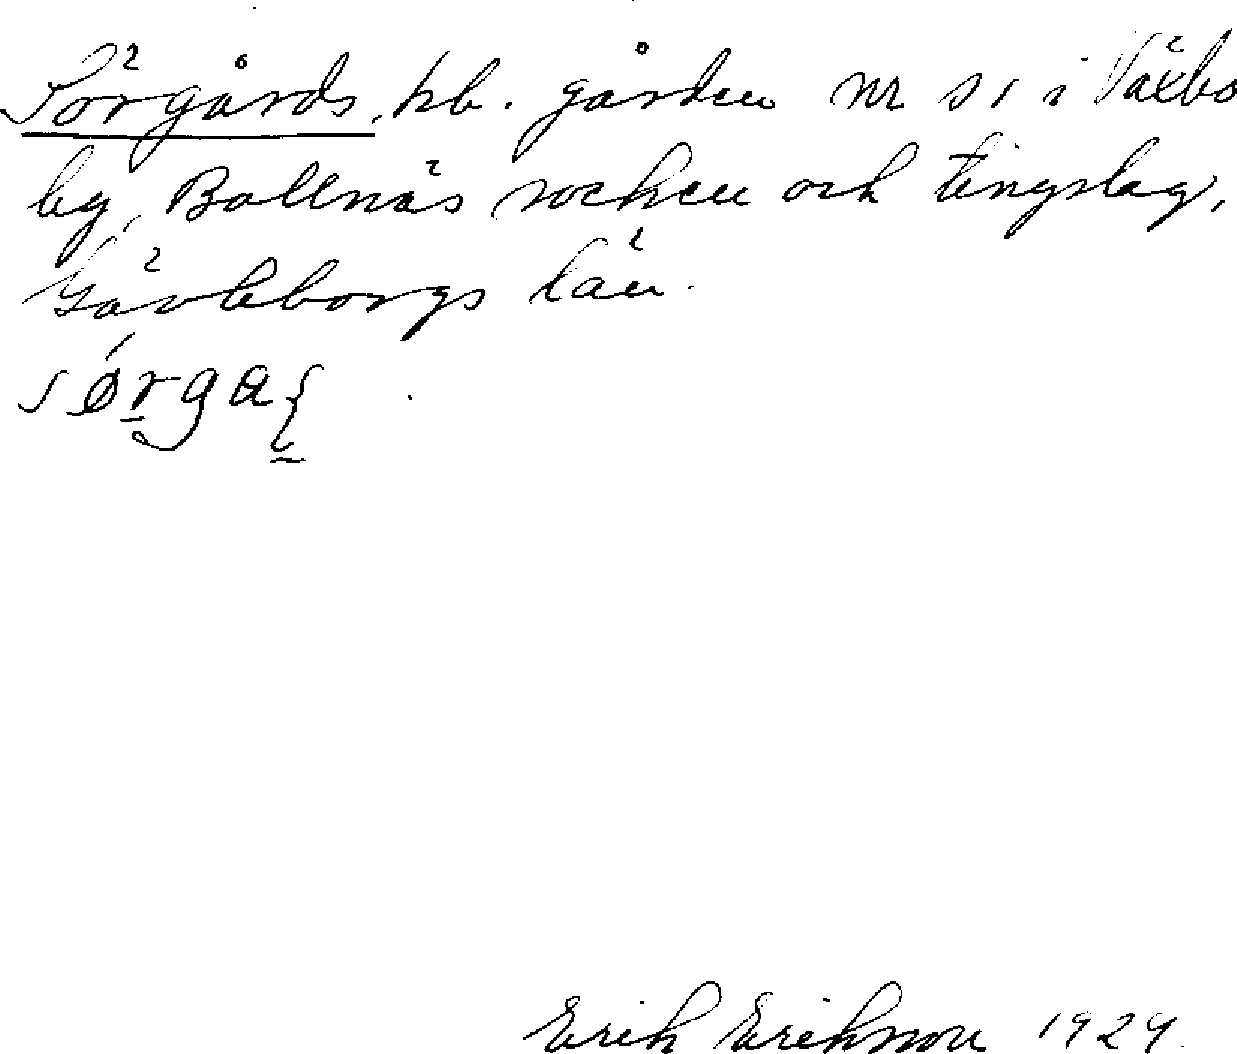 Sörgårds, hb. gården nr 51 i Växbo
by, Bollnäs socken och tingslag,
Gävleborgs län.
Erik Eriksson 1929.